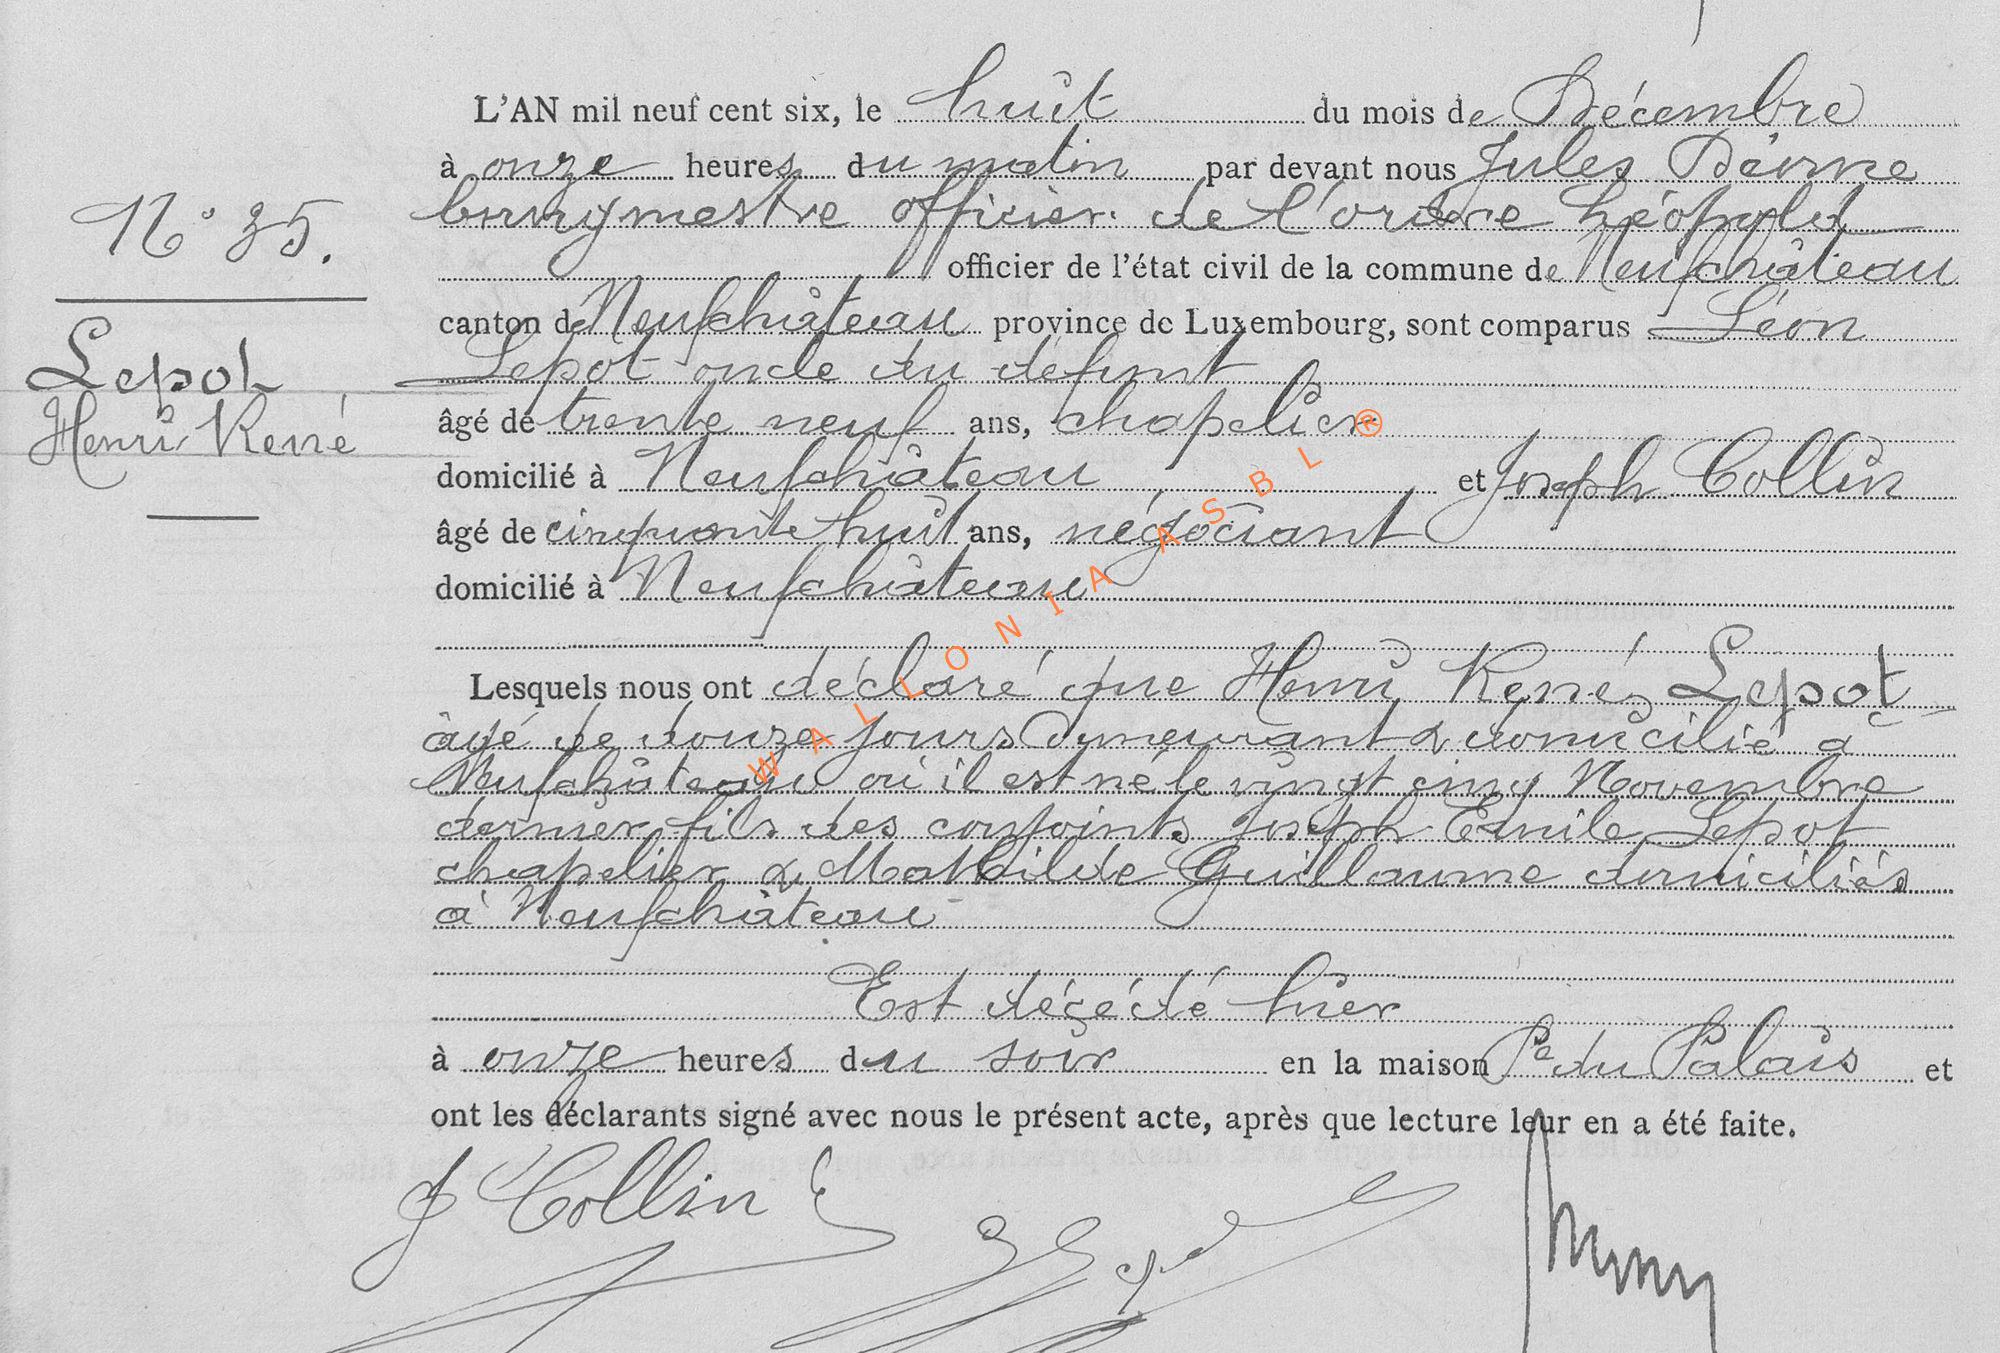 L'AN mil neuf cent six, le huit du mois de Décembre
à onze heures du matin par devant nous Jules
bourgmestre officier de l'ordre Léopold
officier de l'état civil de la commune de Neufchâteau
N° 35.
canton de Neufchâteau province de Luxembourg, sont comparus Léon
Lepot oncle du défunt
Lepot
Henri René
âgé de trente neuf ans, chapelier
domicilié à Neufchâteau et Joseph Collin
âgé de cinquante huit ans, négociant
domicilié à Neufchâteau
WALLONIA ASBL ®
Lesquels nous ont déclaré que Henri René Lepot
âgé de douze jours demeurant & domicilié à
Neufchâteau où il est né le vingt cinq Novembre
dernier fils des conjoints Joseph Emile Lepot
chapelier & Mathilde Guillaume domiciliés
à Neufchâteau
Est décédé hier
à onze heures du soir en la maison Pce du Palais et
ont les déclarants signé avec nous le présent acte, après que lecture leur en a été faite.
J Collin